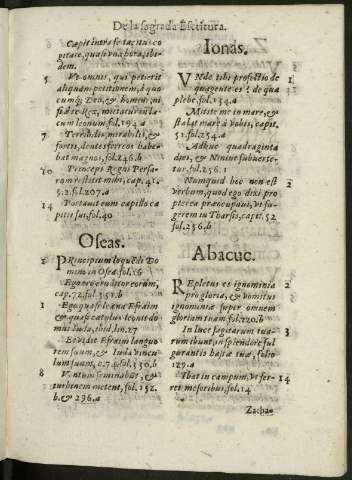 De la sagrada Escritura.
Capit. intra se tacitus co
gitare, quasi una hora, ibi-
dem.
5 Ut omnis, qui petierit
aliquam petitionem, à quo
cumq; Deo, & homine, ni
si à te Rex, mittatur in la-
cum leonum fol. 194. a
7 Terribilis, mirabilis, &
fortis, dentes ferreos habe-
bat magnos, fol. 246. b
10 Princeps Regni Persa-
rum restitit mihi, cap. 41.
5. 2. fol. 207. a
14 Portavit eum capillo ca
pitis sui, fol. 40
Oseas.
1 PRincipium loquēdi Do
mino in Osea. fol. 26
Ego ero eruditor eorum,
cap. 72. fol. 351. b
1 Ego quasi leæna Efraim
& quasi catulus leonis do-
mui Iuda, ibid. lin. 27
Et vidit Efraim languo
rem suum, & Iuda vincu
lum suum, c. 74. fol. 350. b
8 Ventum seminabūt, &
turbinem metent, fol. 152.
b. & 296. a
Ionas.
VNde tibi profectio de 1
qua gente es? de qua
plebe fol. 154. a
Mitite me in mare, &
stabit mare à vobis, capit.
51. fol. 254. a
Adhuc quadraginta
dies, & Ninive subverte-
tur, fol. 256. 1
Numquid hoc non est 2
verbum, quod ego dixi pro
pterea præocupavi, ut fu-
gerem in Tharsis, capit. 52
fol. 256. b
Abacuc.
REpletus es ignominia 2
pro gloria, & vomitus
ignominiæ super omnem
gloriam tuam fol. 220. b.
In luce sagitarum tua- 3
rum ibunt, in splendore ful
gurantis hastæ tuæ, folio
129. a
Ibat in campum, ut fer- 14
ret mesoribus, fol. 14
Zacha-